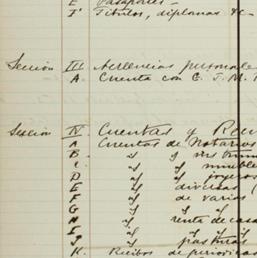 E Pasaportes —
F Titulos, diplomas &c —
Sección III Acreencias personale
A Cuenta con C. J. M.
Sección IV. Cuentas y Reci
A Cuentas de Notarios
B. " y
C. " y muebles
D " y joyeros
E " y diversas (
F " of varios
G " y
H " y renta de casa
I " y
J " y pasturas
K. Recibos de periodicos